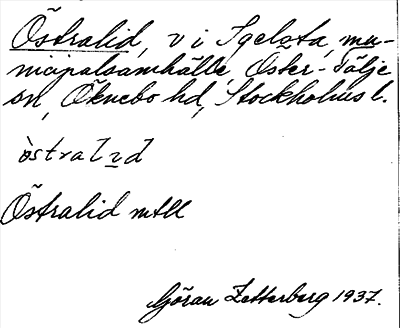 Östralid, v i Igelsta, mu-
nicipalsamhälle, Öster-tälje
sn, Öknebo hd, Stockholms l.
östralɪd
Östralid mtll
Göran Zetterberg 1937.